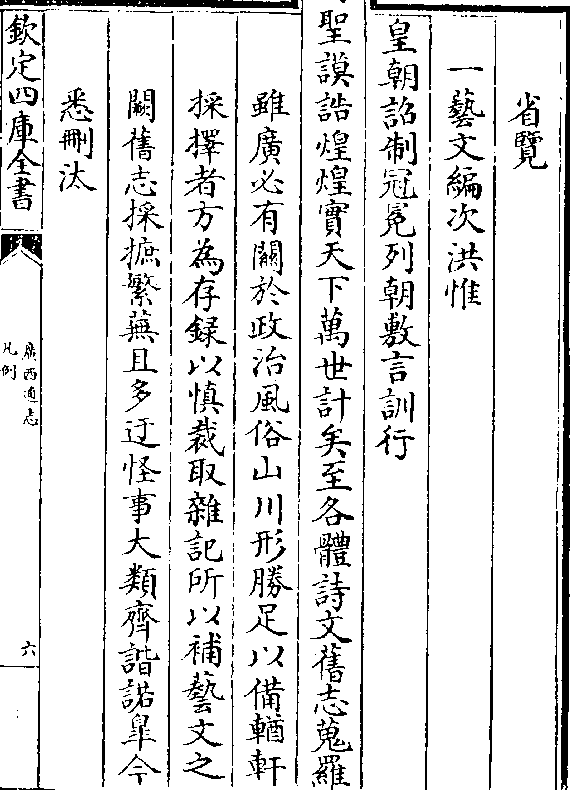 省覽
一藝文編次洪惟
皇朝詔制冠冕列朝敷言訓行
聖謨誥煌煌實天下萬世計矣至各體詩文舊志蒐羅
雖廣必有關於政治風俗山川形勝足以備輶軒
採擇者方為存録以慎裁取雜記所以補藝文之
闕舊志採摭繁蕪且多迂怪事大類齊諧諾臯今
悉刪汰
欽定四庫全書
廣西通志
凡例
六